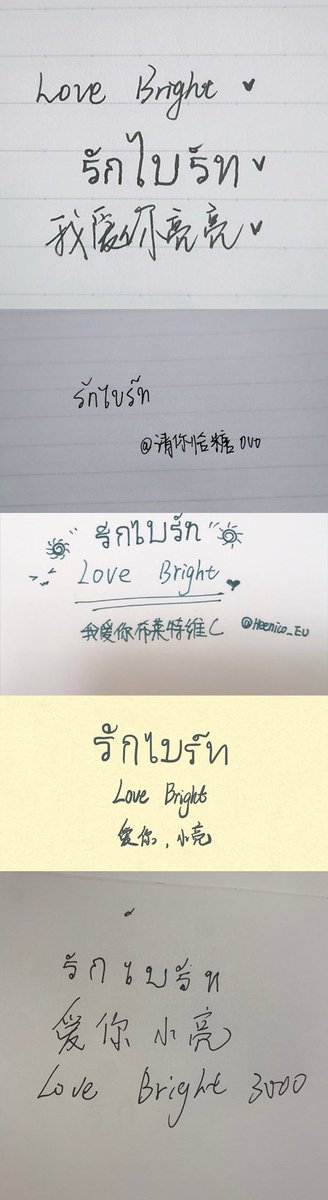 Love Bright
รักไบร์ท
我爱你亮亮
รักไบร์ท
@请你恰糖OVO
รักไบร์ท
Love Bright
我爱你布莱特维C
@Heenico_EU
รักไบร์ท
Love Bright
爱你,小亮
รักไบร์ท
爱你小亮
Love Bright 3000